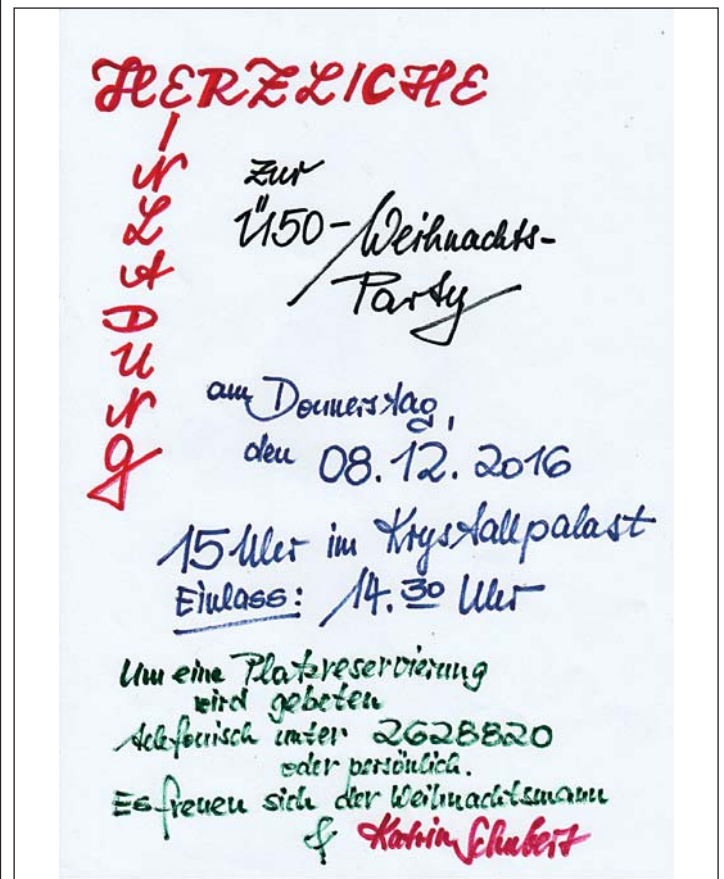 HERZLICHE
EINLADUNG
zur
Ü50-Weihnachts-
Party
am Donnerstag,
den 08.12.2016
15 Uhr im Krystallpalast
Einlass: 14.30 Uhr
Um eine Platzreservierung
wird gebeten
telefonisch unter 2628820
oder persönlich.
Es freuen sich der Weihnachtsmann
& Katrin Schubert